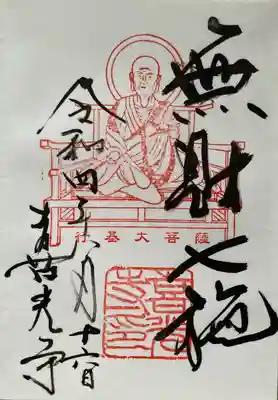 無財七施
行基大菩薩
令和四年六月十六日
喜光寺